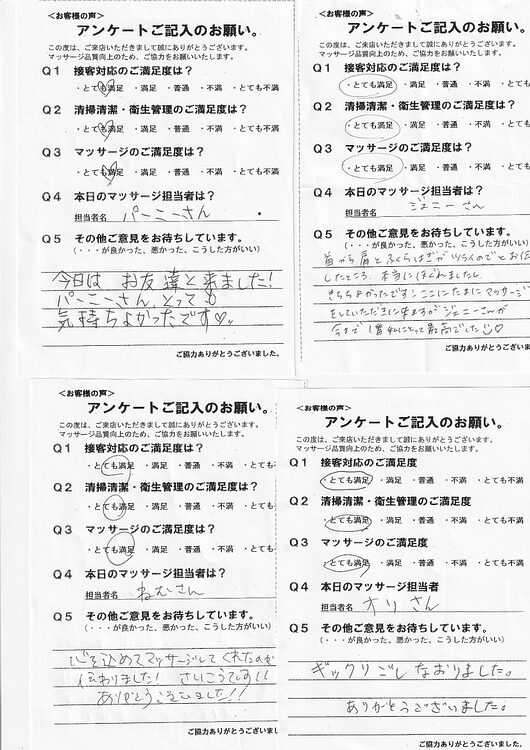 ＜お客様の声＞
アンケートご記入のお願い。
この度は、ご来店いただきまして誠にありがとうございます。
マッサージ品質向上のため、ご協力をお願いいたします。
Q1 接客対応のご満足度は？
・とても満足 ・満足 ・普通 ・不満 ・とても不満
Q2 清掃清潔・衛生管理のご満足度は？
・とても満足 ・満足 ・普通 ・不満 ・とても不満
Q3 マッサージのご満足度は？
・とても満足 ・満足 ・普通 ・不満 ・とても不満
Q4 本日のマッサージ担当者は？
担当者名 パーニーさん
Q5 その他ご意見をお待ちしています。
（・・・が良かった、悪かった、こうした方がいい）
今日は お友達と来ました！
パーニーさん、とっても
気持ちよかったです♡
ご協力ありがとうございました。
＜お客様の声＞
アンケートご記入のお願い。
この度は、ご来店いただきまして誠にありがとうございます。
マッサージ品質向上のため、ご協力をお願いいたします。
Q1 接客対応のご満足度は？
・とても満足 ・満足 ・普通 ・不満 ・とても不満
Q2 清掃清潔・衛生管理のご満足度は？
・とても満足 ・満足 ・普通 ・不満 ・とても不満
Q3 マッサージのご満足度は？
・とても満足 ・満足 ・普通 ・不満 ・とても不満
Q4 本日のマッサージ担当者は？
担当者名 ジェニーさん
Q5 その他ご意見をお待ちしています。
（・・・が良かった、悪かった、こうした方がいい）
首から肩とふくらはぎがツライのでとお伝
したところ、本当にほぐれましたし、
きもちよかったです！ここにたまにマッサージ
をしていただきに来ますがジェニーさんが
今まで1番私にとって最高でした♡
ご協力ありがとうございました。
＜お客様の声＞
アンケートご記入のお願い。
この度は、ご来店いただきまして誠にありがとうございます。
マッサージ品質向上のため、ご協力をお願いいたします。
Q1 接客対応のご満足度は？
・とても満足 ・満足 ・普通 ・不満 ・とても
Q2 清掃清潔・衛生管理のご満足度は？
・とても満足 ・満足 ・普通 ・不満 ・とても
Q3 マッサージのご満足度は？
・とても満足 ・満足 ・普通 ・不満 ・とても
Q4 本日のマッサージ担当者は？
担当者名 ねむさん
Q5 その他ご意見をお待ちしています。
（・・・が良かった、悪かった、こうした方がいい）
心を込めてマッサージしてくれたのが
伝わりました！ さいこうです！！
ありがとうございました！！
ご協力ありがとうございま
＜お客様の声＞
アンケートご記入のお願い。
この度は、ご来店いただきまして誠にありがとうございます。
マッサージ品質向上のため、ご協力をお願いいたします。
Q1 接客対応のご満足度
・とても満足 ・満足 ・普通 ・不満 ・とても不満
Q2 清掃清潔・衛生管理のご満足度
・とても満足 ・満足 ・普通 ・不満 ・とても不満
Q3 マッサージのご満足度
・とても満足 ・満足 ・普通 ・不満 ・とても不満
Q4 本日のマッサージ担当者
担当者名 オリさん
Q5 その他ご意見をお待ちしています。
（・・・が良かった、悪かった、こうした方がいい）
ギックリごしなおりました。
ありがとうございました。
ご協力ありがとうございました。